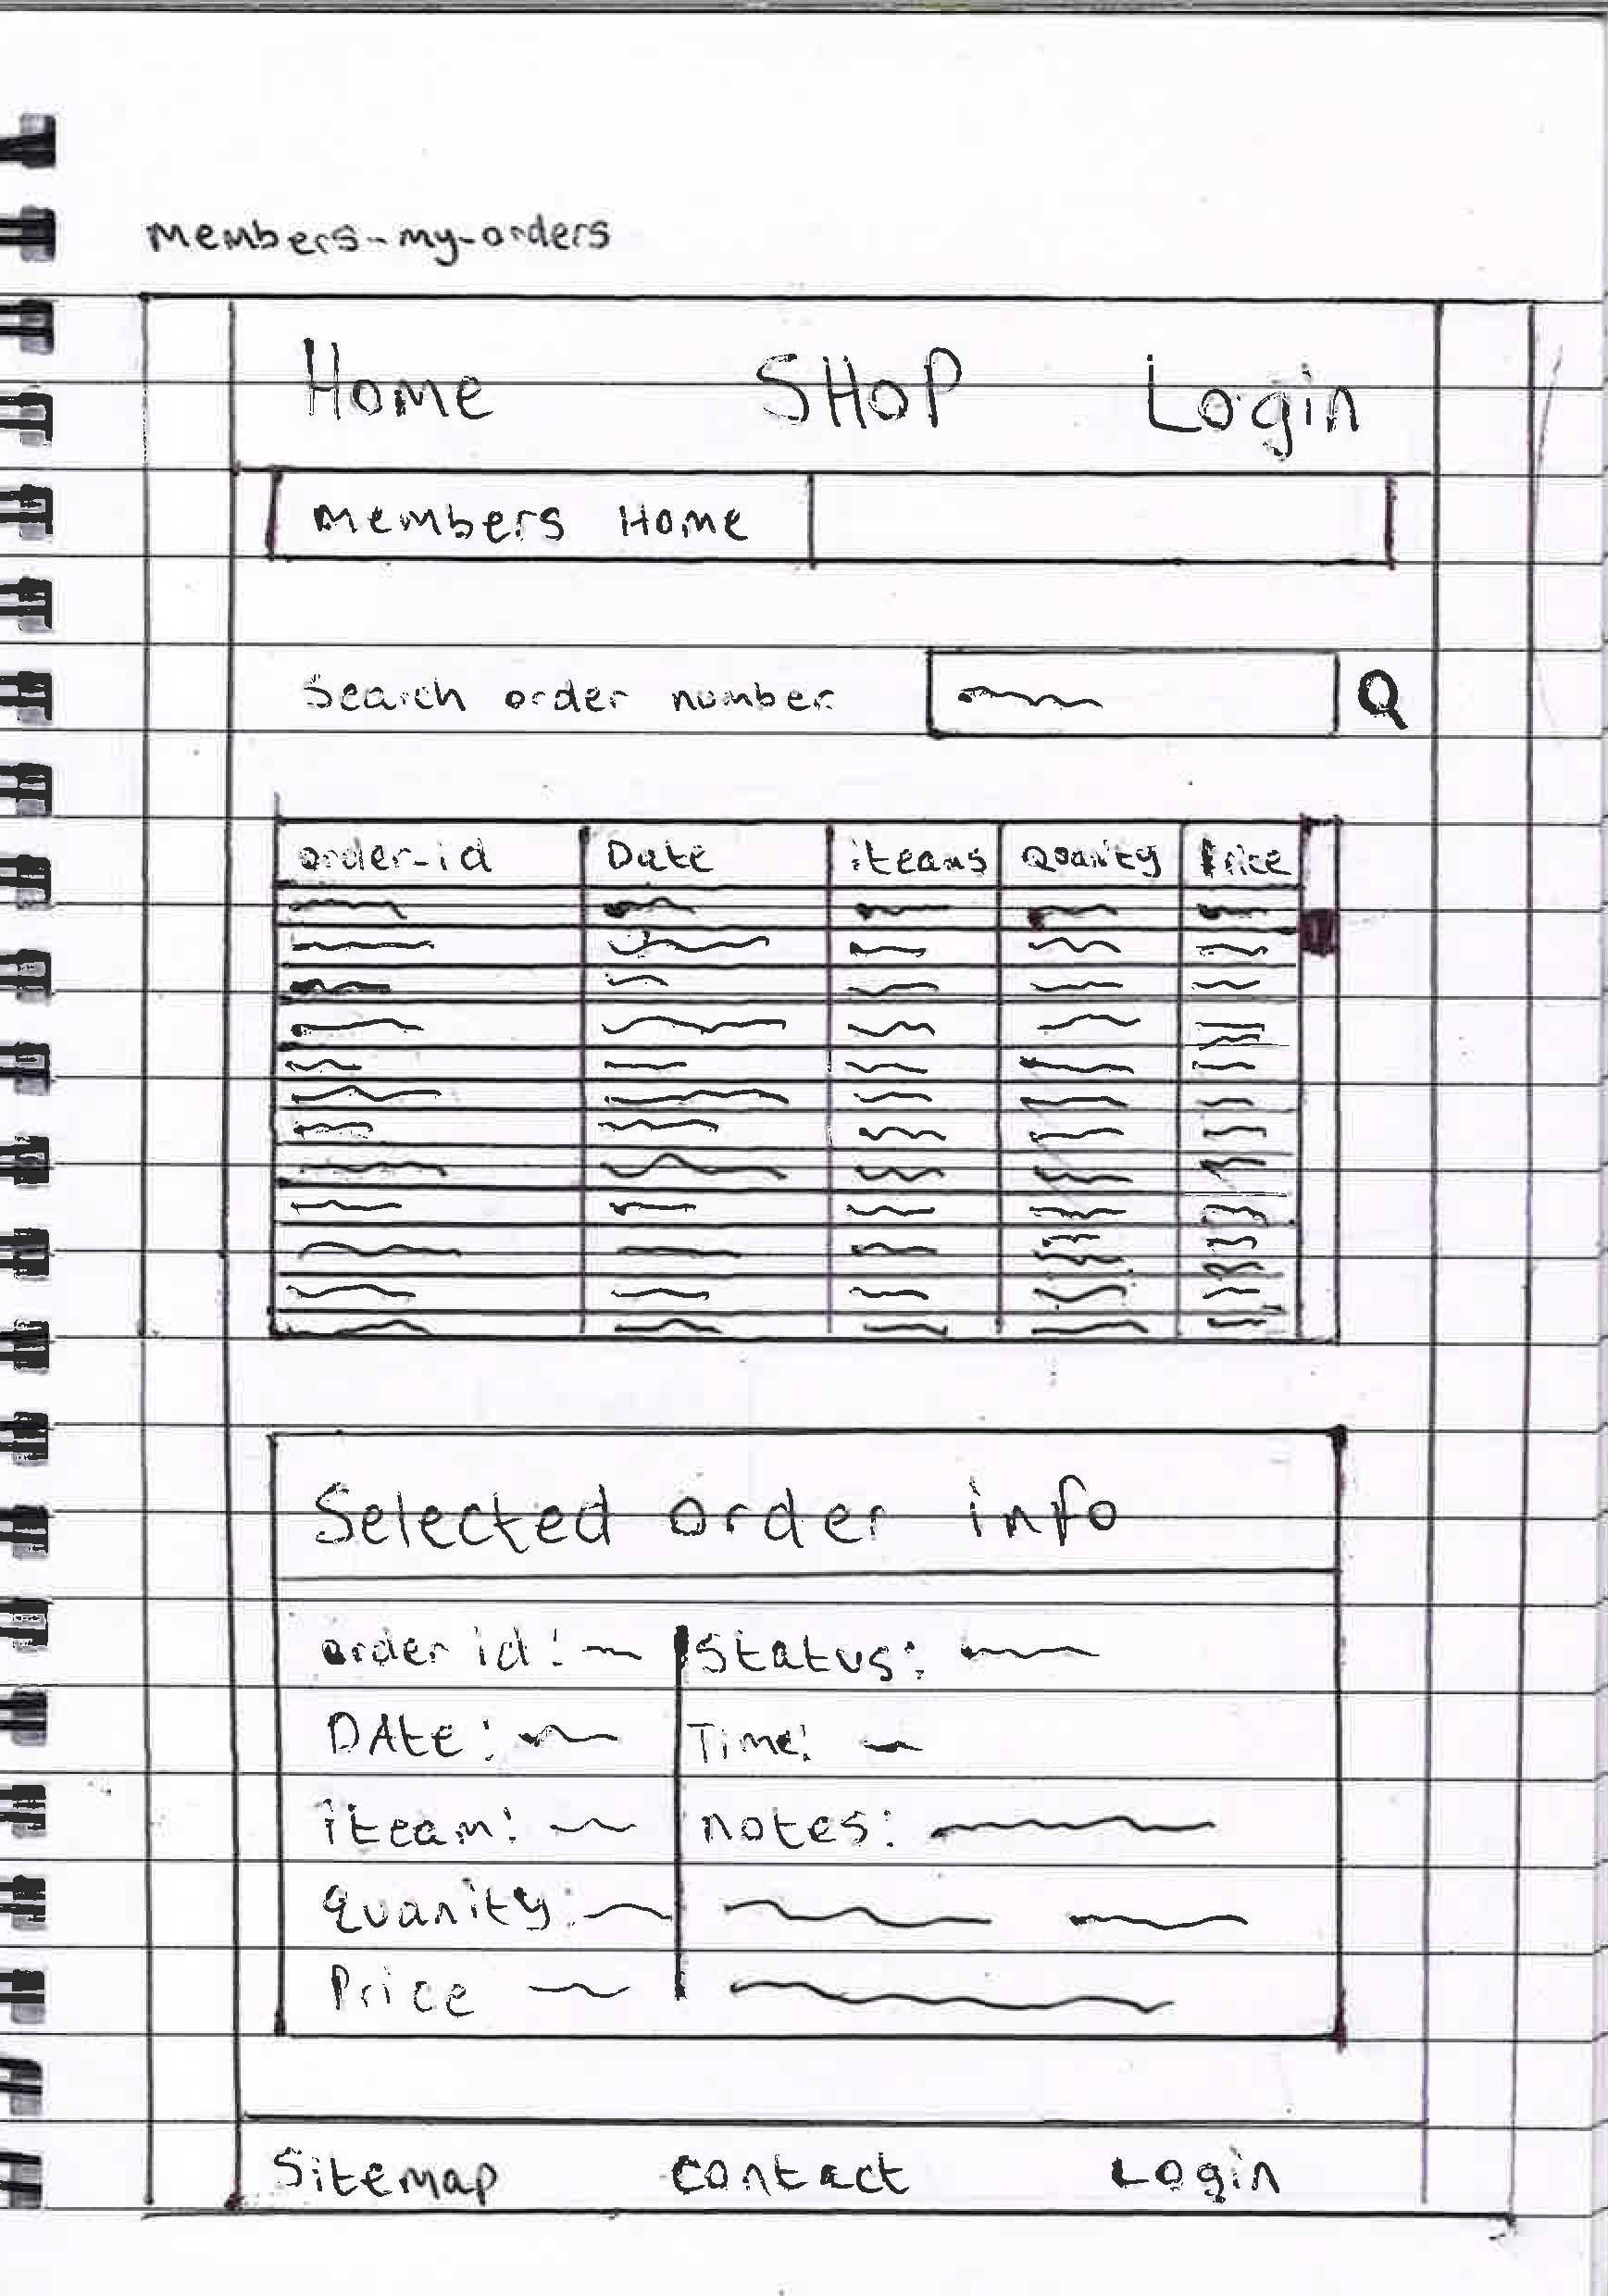 members-my-orders
Home SHOP Login
Members Home
Search order number
order-id Date iteams Quanity Price
Selected order info
order id: Status:
DAte: Time:
iteam: notes:
quanity:
Price
Sitemap contact Login